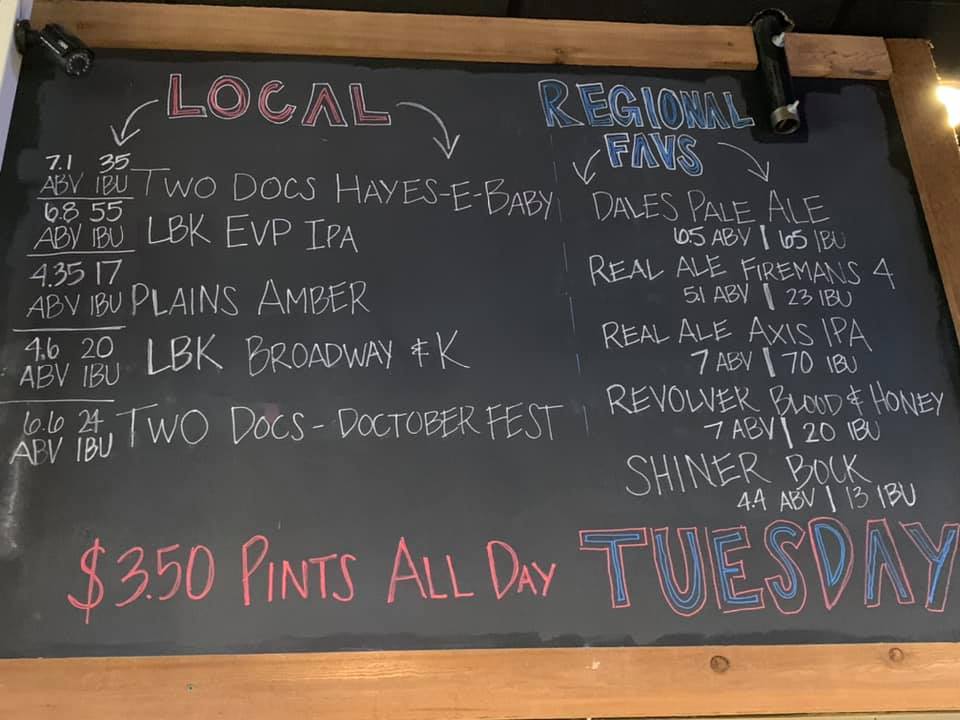 LOCAL
7.1 35
ABV IBU TWO DOCS HAYES-E-BABY
6.8 55
ABV IBU LBK EVP IPA
4.35 17
ABV IBU PLAINS AMBER
4.6 20
ABV IBU LBK BROADWAY & K
6.6 24
ABV IBU TWO DOCS - DOCTOBERFEST
REGIONAL
FAVS
DALES PALE ALE
6.5 ABV | 65 IBU
REAL ALE FIREMANS 4
5.1 ABV | 23 IBU
REAL ALE AXIS IPA
7 ABV | 70 IBU
REVOLVER BLOOD & HONEY
7 ABV | 20 IBU
SHINER BOCK
4.4 ABV | 13 IBU
$3.50 PINTS ALL DAY TUESDAY